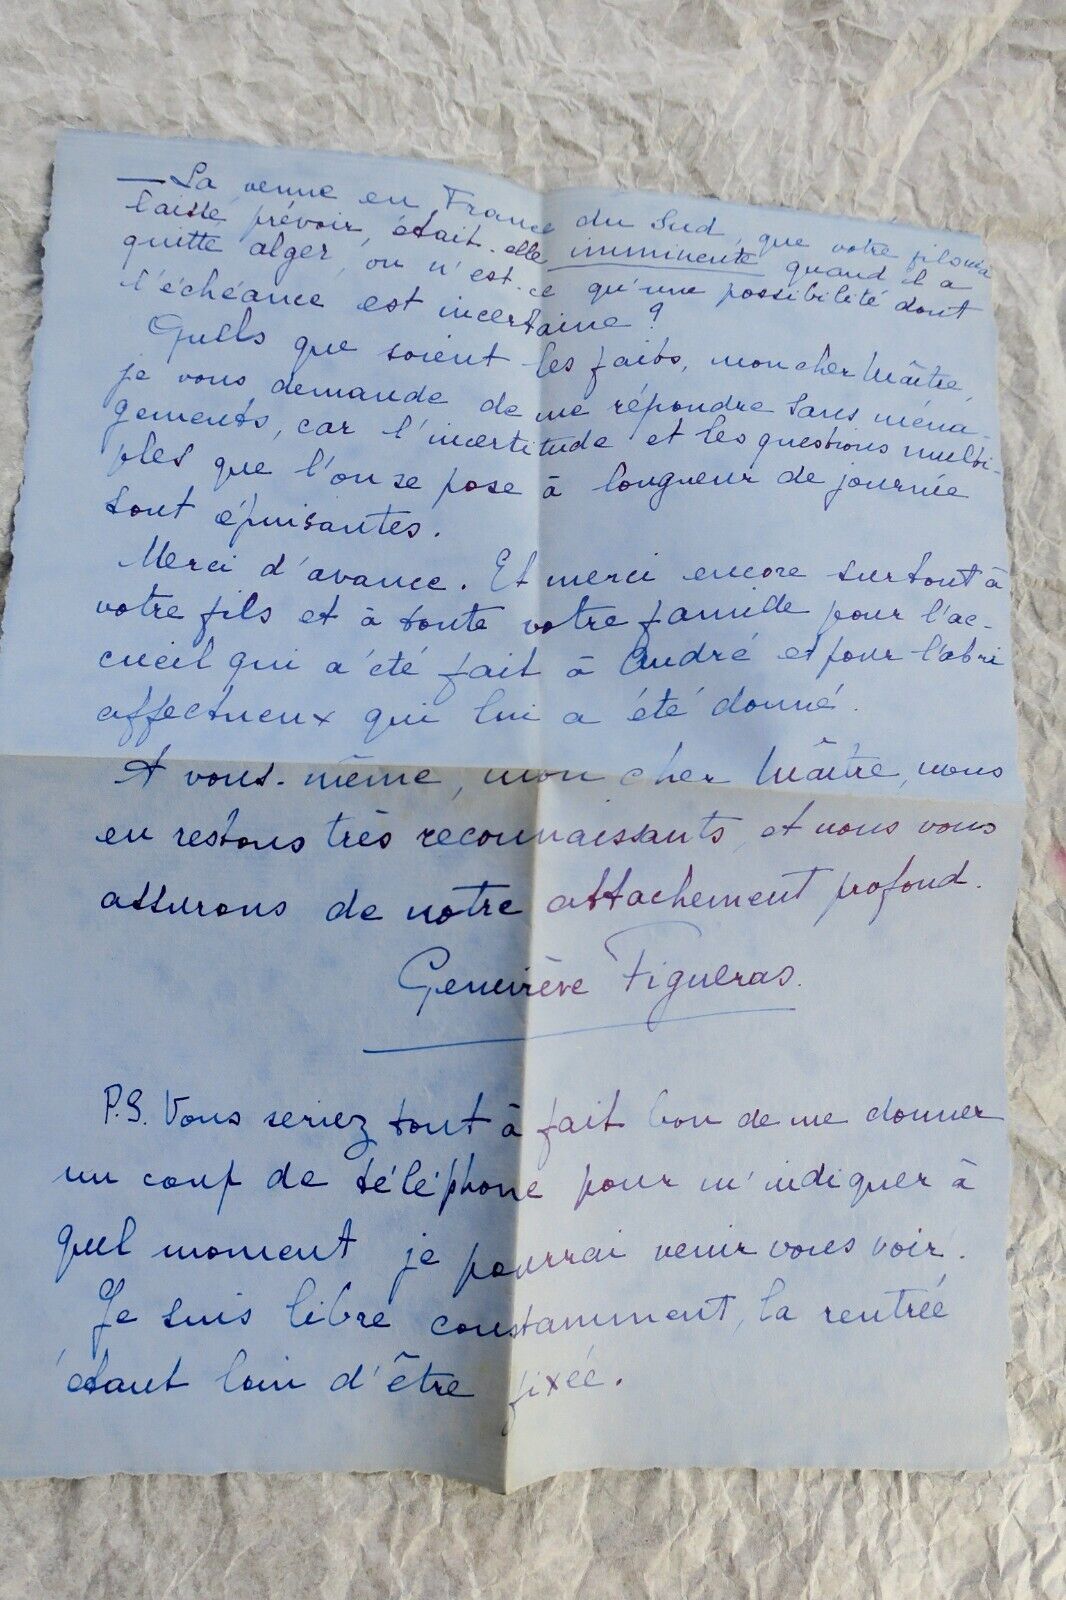 — La venue en France du Sud, que votre fils m'a
laissé prévoir, était-elle imminente quand il a
quitté alger, ou n'est-ce qu'une possibilité dont
l'échéance est incertaine ?
Quels que soient les faits, mon cher Maître,
je vous demande de me répondre sans ména-
gements, car l'incertitude et les questions multi-
ples que l'on se pose à longueur de journée
sont épuisantes.
Merci d'avance. Et merci encore surtout à
votre fils et à toute votre famille pour l'ac-
cueil qui a été fait à André et pour l'abri
affectueux qui lui a été donné.
A vous-même, mon cher Maître, nous
en restons très reconnaissants, et nous vous
assurons de notre attachement profond.
Geneviève Figueras.
P.S. Vous seriez tout à fait bon de me donner
un coup de téléphone pour m'indiquer à
quel moment je pourrai venir vous voir.
Je suis libre constamment, la rentrée
étant loin d'être fixée.